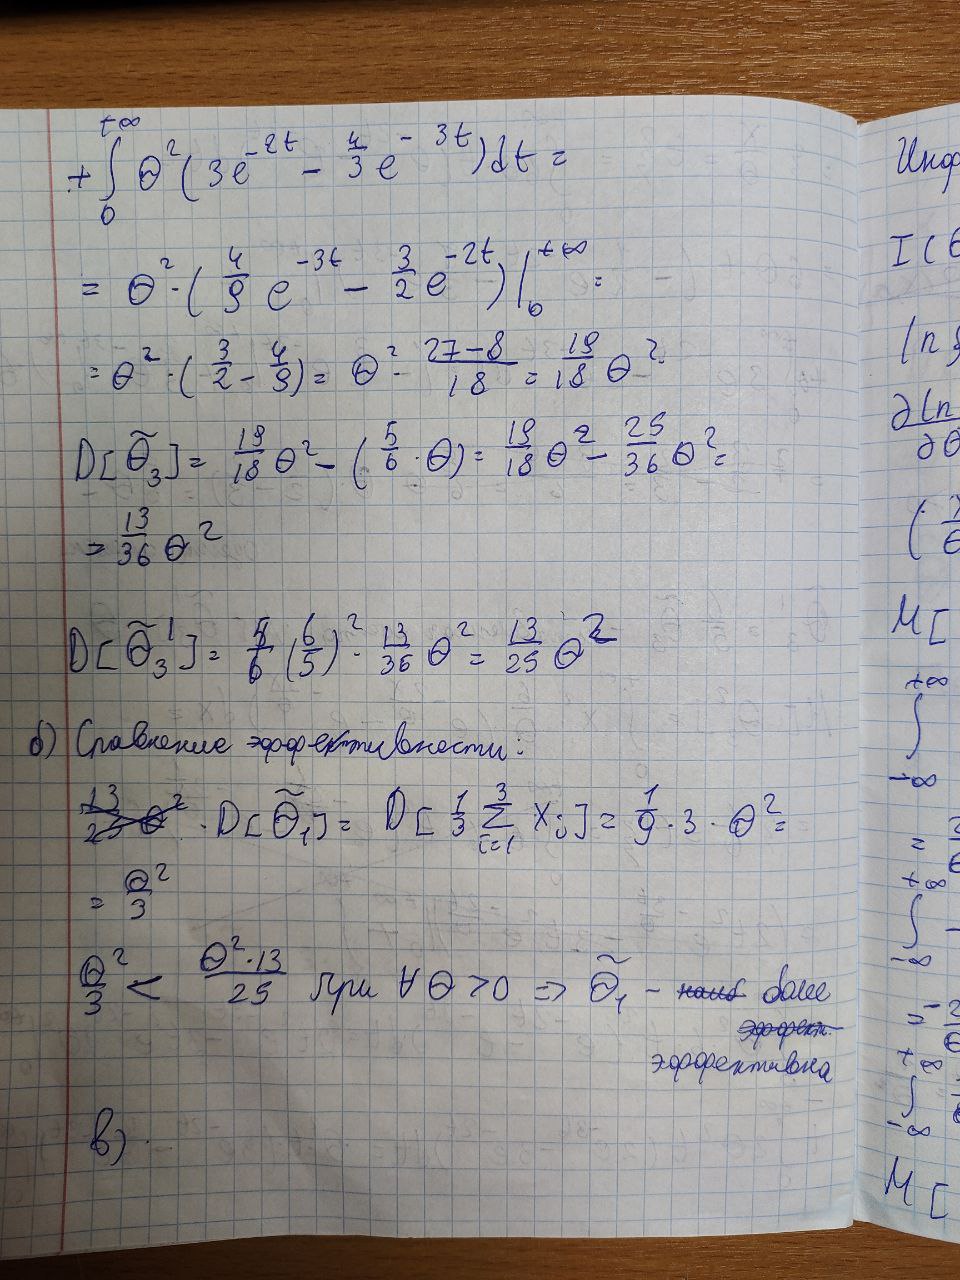 +∞
+ ∫ θ² ( 3e^{-2t} - 4/3 e^{-3t} ) dt =
0
= θ² · ( 4/9 e^{-3t} - 3/2 e^{-2t} ) |₀^{+∞} =
= θ² · ( 3/2 - 4/9 ) = θ² · (27-8)/18 = 19/18 θ²
D[θ̃₃] = 19/18 θ² - ( 5/6 · θ ) = 19/18 θ² - 25/36 θ² =
= 13/36 θ²
D[θ̃₃¹] = (6/5)² · 13/36 θ² = 13/25 θ²
б) Сравнение эффективности:
13/25 θ² . D[θ̃₁] = D[ 1/3 Σ_{i=1}^{3} X_i ] = 1/9 · 3 · θ² =
= θ²/3
θ²/3 < θ²·13/25 при ∀ θ > 0 => θ̃₁ - наиб более
эффект.
эффективна
в) .
Инф
I(θ
ln
∂ln
∂θ
(
M[
+∞
∫
-∞
=
+∞
∫ -
-∞
= -2
+∞
∫
-∞
M[